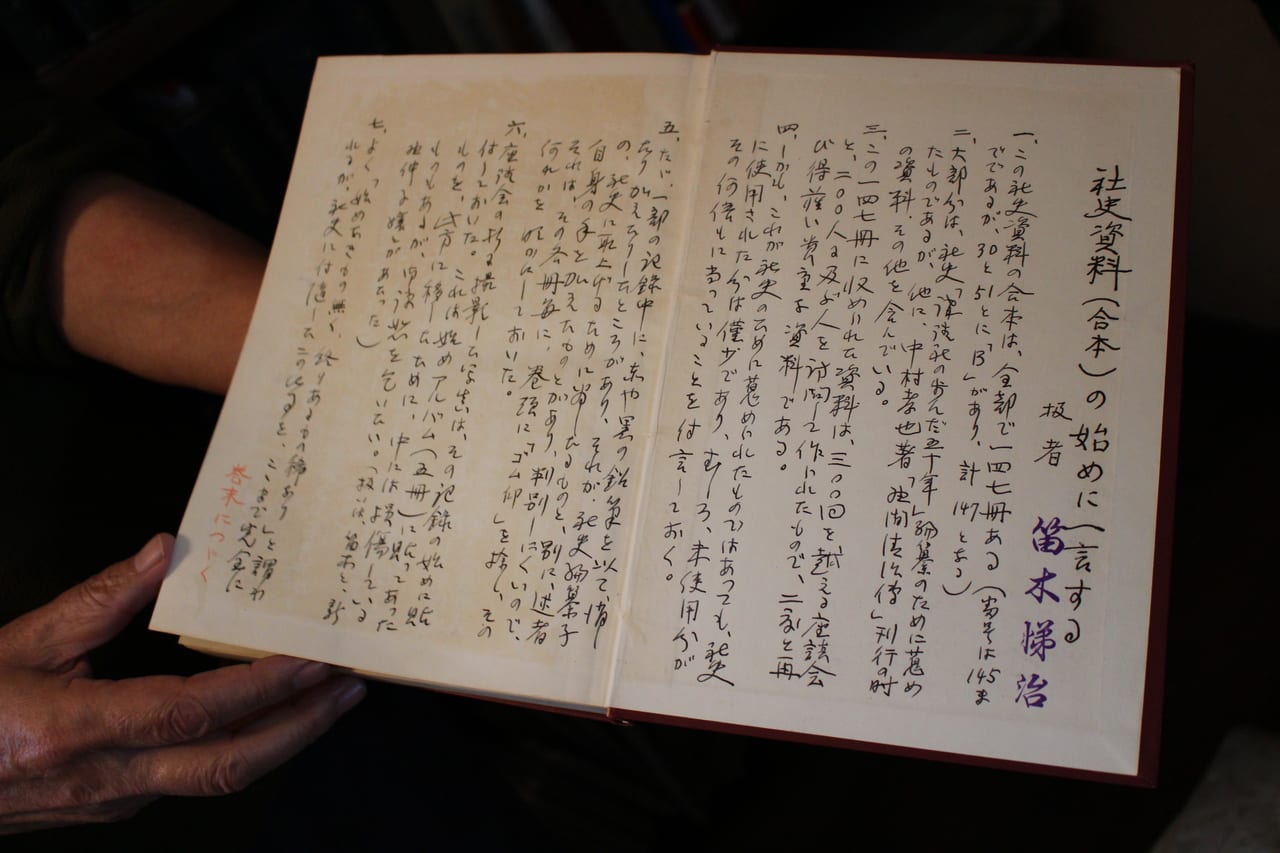 社史資料(合本)の始めに一言する
扱者 笛木悌治
一、この社史資料の合本は、全部で一四七冊ある(番号は145ま
でであるが、30と51とに「B」があり、計147となる)
二、大部分は、社史「講談社の歩んだ五十年」編纂のために蒐め
たものであるが、他に、中村孝也著「野間清治傳」刊行の時
の資料、その他を含んでいる。
三、この一四七冊に収められた資料は、三〇〇回を越える座談会
と、二〇〇人に及ぶ人を訪問して作られたもので、二度と再
び得難い貴重な資料である。
四、しかも、これが社史のために蒐められたものではあっても、社史
に使用された分は僅少であり、むしろ、未使用分が
その何倍にも当っていることを付言しておく。
五、たゞ、一部の記録中に、赤や黒の鉛筆を以て、消し
たり加えたりしたところがあり、それが、社史編纂子
の、社史に取上げるために
自身の手を加えたものとがあり、判別しにくいので、
それは、その各冊毎に、巻頭に「ゴム印」を捺し、その
何れかを明かにしておいた。
六、座談会の折に撮影した写真は、その記録の始めに貼
付しておいた。これは始めアルバム(五冊)に貼ってあった
ものを、此方に移したために、中には損傷している
ものもあるが、
七、よく「始めあるもの無く、終りあるもの稀なり」と謂わ
れるが、社史に付随したこの仕事を、ここまで完全に
巻末につゞく